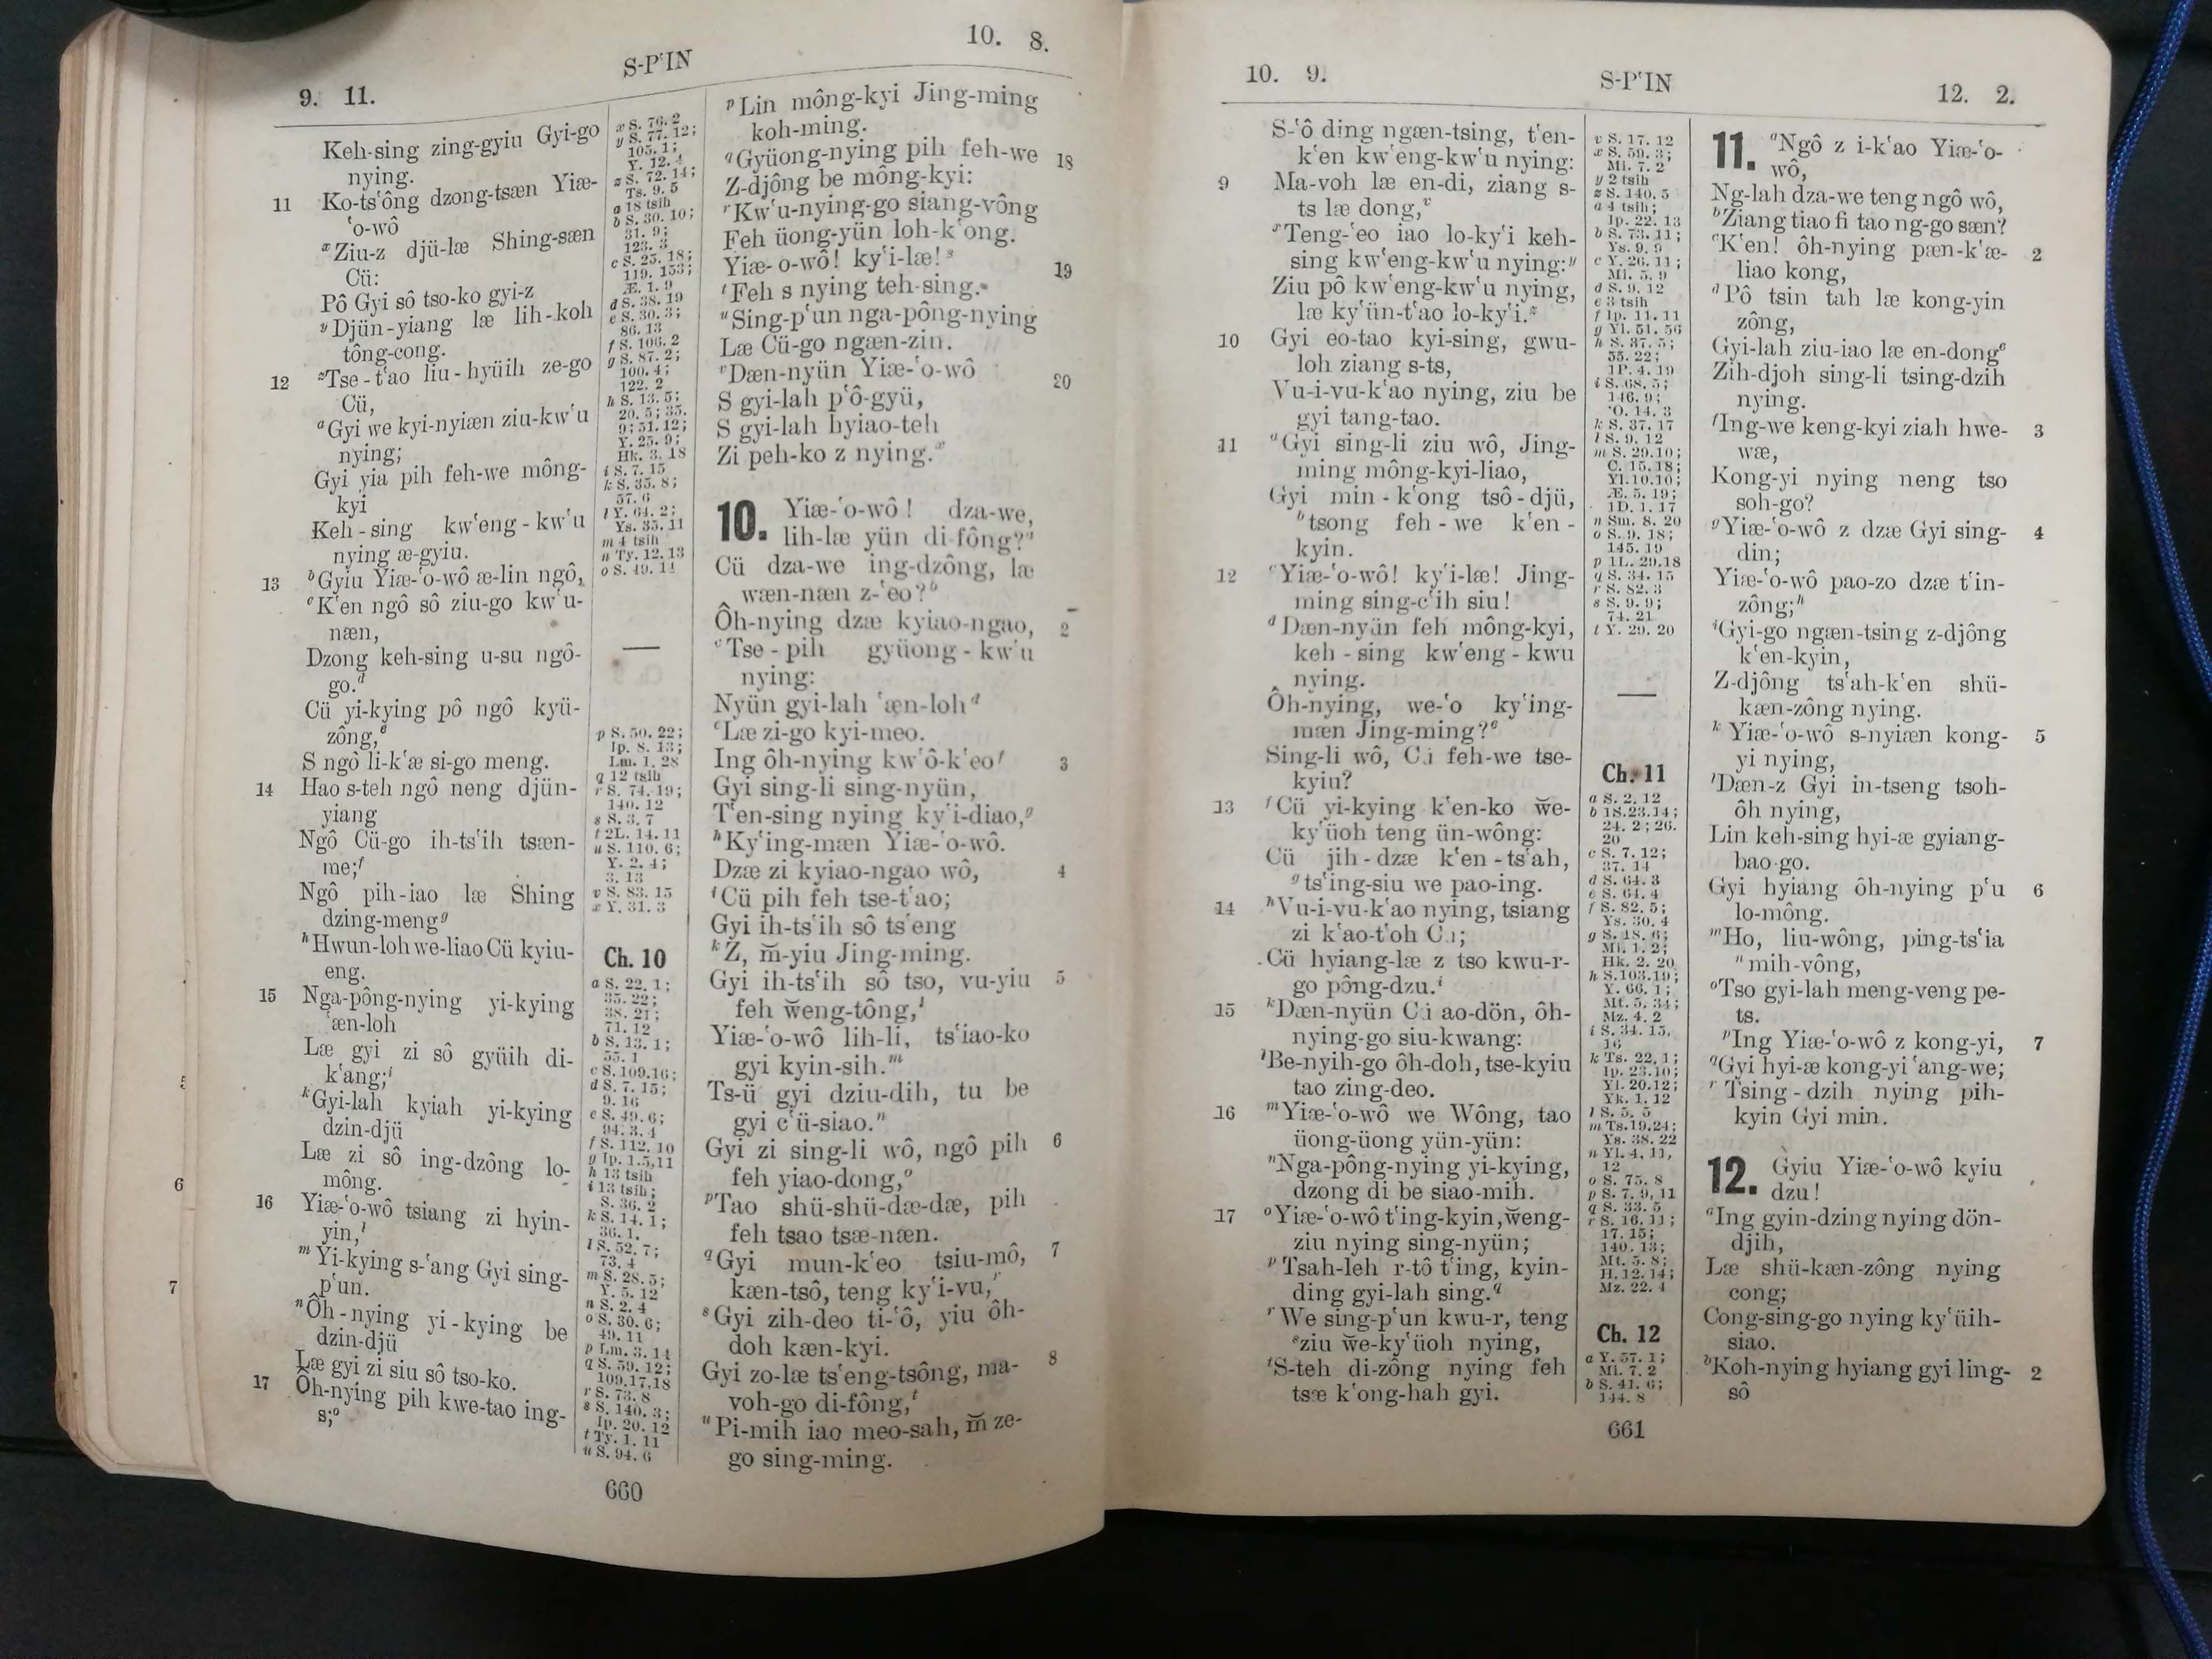 9. 11.
S-Pʽ IN
10. 8.
Keh-sing zing-gyiu Gyi-go
nying.
11 Ko-tsʽông dzong-tsæn Yiæ-
ʽo-wô
ˣZiu-z djü-læ Shing-sæn
Cü:
Pô Gyi sô tso-ko gyi-z
ʸDjün-yiang læ lih-koh
tông-cong.
12 ᶻTse-tʽao liu-hyüih ze-go
Cü,
ᵃGyi we kyi-nyiæn ziu-kwʽu
nying;
Gyi yia pih feh-we mông-
kyi
Keh-sing kwʽeng-kwʽu
nying æ-gyiu.
13 ᵇGyiu Yiæ-ʽo-wô æ-lin ngô,
ᶜKʽen ngô sô ziu-go kwʽu-
næn,
Dzong keh-sing u-su ngô-
go.ᵈ
Cü yi-kying pô ngô kyü-
zông,ᵉ
S ngô li-kʽæ si-go meng.
14 Hao s-teh ngô neng djün-
yiang
Ngô Cü-go ih-tsʽih tsæn-
me;ᶠ
Ngô pih-iao læ Shing
dzing-mengᵍ
ʰHwun-loh we-liao Cü kyiu-
eng.
15 Nga-pông-nying yi-kying
ʽæn-loh
Læ gyi zi sô gyüih di-
kʽang;ⁱ
ᵏGyi-lah kyiah yi-kying
dzin-djü
Læ zi sô ing-dzông lo-
mông.
16 Yiæ-ʽo-wô tsiang zi hyin-
yin,ˡ
ᵐYi-kying s-ʽang Gyi sing-
pʽun.
ⁿÔh-nying yi-kying be
dzin-djü
Læ gyi zi siu sô tso-ko.
17 Ôh-nying pih kwe-tao ing-
s;ᵒ
x S. 76. 2
y S. 77. 12;
105. 1;
Y. 12. 4
z S. 72. 14;
Ts. 9. 5
a 18 tsih
b S. 30. 10;
31. 9;
123. 3
c S. 25. 18;
119. 153;
Æ. 1. 9
d S. 38. 19
e S. 30. 3;
86. 13
f S. 106. 2
g S. 87. 2;
100. 4;
122. 2
h S. 13. 5;
20. 5; 35.
9; 51. 12;
Y. 25. 9;
Hk. 3. 18
i S. 7. 15
k S. 35. 8;
57. 6
l Y. 64. 2;
Ys. 35. 11
m 4 tsih
n Ty. 12. 13
o S. 49. 14
p S. 50. 22;
Ip. 8. 13;
Lm. 1. 28
q 12 tsih
r S. 74. 19;
140. 12
s S. 3. 7
t 2L. 14. 11
u S. 110. 6;
Y. 2. 4;
3. 13
v S. 83. 15
x Y. 31. 3
Ch. 10
a S. 22. 1;
35. 22;
38. 21;
71. 12
b S. 13. 1;
55. 1
c S. 109. 16;
d S. 7. 15;
9. 16
e S. 49. 6;
94. 3, 4
f S. 112. 10
g Ip. 1. 5, 11
h 13 tsih
i 13 tsih;
S. 36. 2
k S. 14. 1;
36. 1.
l S. 52. 7;
73. 4
m S. 28. 5;
Y. 5. 12
n S. 2. 4
o S. 30. 6;
49. 11
p Lm. 3. 14
q S. 59. 12;
109. 17, 18
r S. 73. 8
s S. 140. 3;
Ip. 20. 12
t Ty. 1. 11
u S. 94. 6
ᵖLin mông-kyi Jing-ming
koh-ming.
ᑫGyüong-nying pih feh-we 18
Z-djông be mông-kyi:
ʳKwʽu-nying-go siang-vông
Feh üong-yün loh-kʽong.
Yiæ-ʽo-wô! kyʽi-læ!ˢ 19
ᵗFeh s nying teh-sing.
ᵘSing-pʽun nga-pông-nying
Læ Cü-go ngæn-zin.
ᵛDæn-nyün Yiæ-ʽo-wô 20
S gyi-lah pʽô-gyü,
S gyi-lah hyiao-teh
Zi peh-ko z nying.ˣ
10. Yiæ-ʽo-wô! dza-we,
lih-læ yün di-fông?ᵃ
Cü dza-we ing-dzông, læ
wæn-næn z-ʽeo?ᵇ
Ôh-nying dzæ kyiao-ngao, 2
ᶜTse-pih gyüong-kwʽu
nying:
Nyün gyi-lah ʽæn-lohᵈ
ᵉLæ zi-go kyi-meo.
Ing ôh-nying kwʽô-kʽeoᶠ 3
Gyi sing-li sing-nyün,
Tʽen-sing nying kyʽi-diao,ᵍ
ʰKyʽing-mæn Yiæ-ʽo-wô.
Dzæ zi kyiao-ngao wô, 4
ⁱCü pih feh tse-tʽao;
Gyi ih-tsʽih sô tsʽeng
ᵏZ, m̆-yiu Jing-ming.
Gyi ih-tsʽih sô tso, vu-yiu 5
feh w̆eng-tông,ˡ
Yiæ-ʽo-wô lih-li, tsʽiao-ko
gyi kyin-sih.ᵐ
Ts-ü gyi dziu-dih, tu be
gyi cʽü-siao.ⁿ
Gyi zi sing-li wô, ngô pih 6
feh yiao-dong,ᵒ
ᵖTao shü-shü-dæ-dæ, pih
feh tsao tsæ-næn.
ᑫGyi mun-kʽeo tsiu-mô, 7
kæn-tsô, teng kyʽi-vu,ʳ
ˢGyi zih-deo ti-ʽô, yiu ôh-
doh kæn-kyi.
Gyi zo-læ tsʽeng-tsông, ma- 8
voh-go di-fông,ᵗ
ᵘPi-mih iao meo-sah, m̆ ze-
go sing-ming.
660
5
6
7
10. 9.
S-Pʽ IN
12. 2.
S-ʽô ding ngæn-tsing, tʽen-
kʽen kwʽeng-kwʽu nying:
9 Ma-voh læ en-di, ziang s-
ts læ dong,ᵛ
ˣTeng-ʽeo iao lo-kyʽi keh-
sing kwʽeng-kwʽu nying:ʸ
Ziu pô kwʽeng-kwʽu nying,
læ kyʽün-tʽao lo-kyʽi.ᶻ
10 Gyi eo-tao kyi-sing, gwu-
loh ziang s-ts,
Vu-i-vu-kʽao nying, ziu be
gyi tang-tao.
11 ᵃGyi sing-li ziu wô, Jing-
ming mông-kyi-liao,
Gyi min-kʽong tsô-djü,
ᵇtsong feh-we kʽen-
kyin.
12 ᶜYiæ-ʽo-wô! kyʽi-læ! Jing-
ming sing-cʽih siu!
ᵈDæn-nyün feh mông-kyi,
keh-sing kwʽeng-kwu
nying.
Ôh-nying, we-ʽo kyʽing-
mæn Jing-ming?ᵉ
Sing-li wô, Cü feh-we tse-
kyiu?
13 ᶠCü yi-kying kʽen-ko w̆e-
kyʽüoh teng ün-wông:
Cü jih-dzæ kʽen-tsʽah,
ᵍtsʽing-siu we pao-ing.
14 ʰVu-i-vu-kʽao nying, tsiang
zi kʽao-tʽoh Cü;
Cü hyiang-læ z tso kwu-r-
go pông-dzu.ⁱ
15 ᵏDæn-nyün Cü ao-dön, ôh-
nying-go siu-kwang:
ˡBe-nyih-go ôh-doh, tse-kyiu
tao zing-deo.
16 ᵐYiæ-ʽo-wô we Wông, tao
üong-üong yün-yün:
ⁿNga-pông-nying yi-kying,
dzong di be siao-mih.
17 ᵒYiæ-ʽo-wô tʽing-kyin, w̆eng-
ziu nying sing-nyün;
ᵖTsah-leh r-tô tʽing, kyin-
ding gyi-lah sing.ᑫ
ʳWe sing-pʽun kwu-r, teng
ˢziu w̆e-kyʽüoh nying,
ᵗS-teh di-zông nying feh
tsæ kʽong-hah gyi.
v S. 17. 12
x S. 59. 3;
Mi. 7. 2
y 2 tsih
z S. 140. 5
a 4 tsih;
Ip. 22. 13
b S. 73. 11;
Ys. 9. 9
c Y. 26. 11;
Mi. 5. 9
d S. 9. 12
e 3 tsih
f Ip. 11. 11
g Yl. 51. 56
h S. 37. 5;
55. 22;
1P. 4. 19
i S. 68. 5;
146. 9;
ʽO. 14. 3
k S. 37. 17
l S. 9. 12
m S. 29. 10;
C. 15. 18;
Yl. 10. 10;
Æ. 5. 19;
1D. 1. 17
n Sm. 8. 20
o S. 9. 18;
145. 19
p 1L. 29. 18
q S. 34. 15
r S. 82. 3
s S. 9. 9;
74. 21
t Y. 29. 20
Ch. 11
a S. 2. 12
b 1S. 23. 14;
24. 2; 26.
20
c S. 7. 12;
37. 14
d S. 64. 3
e S. 64. 4
f S. 82. 5;
Ys. 30. 4
g S. 18. 6;
Mi. 1. 2;
Hk. 2. 20
h S. 103. 19;
Y. 66. 1;
Mt. 5. 34;
Mz. 4. 2
i S. 34. 15,
16
k Ts. 22. 1;
Ip. 23. 10;
Yl. 20. 12;
Yk. 1. 12
l S. 5. 5
m Ts. 19. 24;
Ys. 38. 22
n Yl. 4. 11,
12
o S. 75. 8
p S. 7. 9, 11
q S. 33. 5
r S. 16. 11;
17. 15;
140. 13;
Mt. 5. 8;
H. 12. 14;
Mz. 22. 4
Ch. 12
a Y. 57. 1;
Mi. 7. 2
b S. 41. 6;
144. 8
11. ᵃNgô z i-kʽao Yiæ-ʽo-
wô,
Ng-lah dza-we teng ngô wô,
ᵇZiang tiao fi tao ng-go sæn?
ᶜKʽen! ôh-nying pæn-kʽæ- 2
liao kong,
ᵈPô tsin tah læ kong-yin
zông,
Gyi-lah ziu-iao læ en-dongᵉ
Zih-djoh sing-li tsing-dzih
nying.
ᶠIng-we keng-kyi ziah hwe- 3
wæ,
Kong-yi nying neng tso
soh-go?
ᵍYiæ-ʽo-wô z dzæ Gyi sing- 4
din;
Yiæ-ʽo-wô pao-zo dzæ tʽin-
zông;ʰ
ⁱGyi-go ngæn-tsing z-djông
kʽen-kyin,
Z-djông tsʽah-kʽen shü-
kæn-zông nying.
ᵏYiæ-ʽo-wô s-nyiæn kong- 5
yi nying,
ˡDæn-z Gyi in-tseng tsoh-
ôh nying,
Lin keh-sing hyi-æ gyiang-
bao-go.
Gyi hyiang ôh-nying pʽu 6
lo-mông.
ᵐHo, liu-wông, ping-tsʽia
ⁿmih-vông,
ᵒTso gyi-lah meng-veng pe-
ts.
ᵖIng Yiæ-ʽo-wô z kong-yi, 7
ᑫGyi hyi-æ kong-yi ʽang-we;
ʳTsing-dzih nying pih-
kyin Gyi min.
12. Gyiu Yiæ-ʽo-wô kyiu
dzu!
ᵃIng gyin-dzing nying dön-
djih,
Læ shü-kæn-zông nying
cong;
Cong-sing-go nying kyʽüih-
siao.
ᵇKoh-nying hyiang gyi ling- 2
sô
661